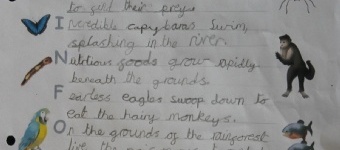 to get their prey.
Incredible capybaras swim,
splashing in the river.
Nutritious foods grow rapidly
beneath the grounds.
Fearless eagles swoop down to
eat the hairy monkeys.
On the grounds of the rainforest
live the